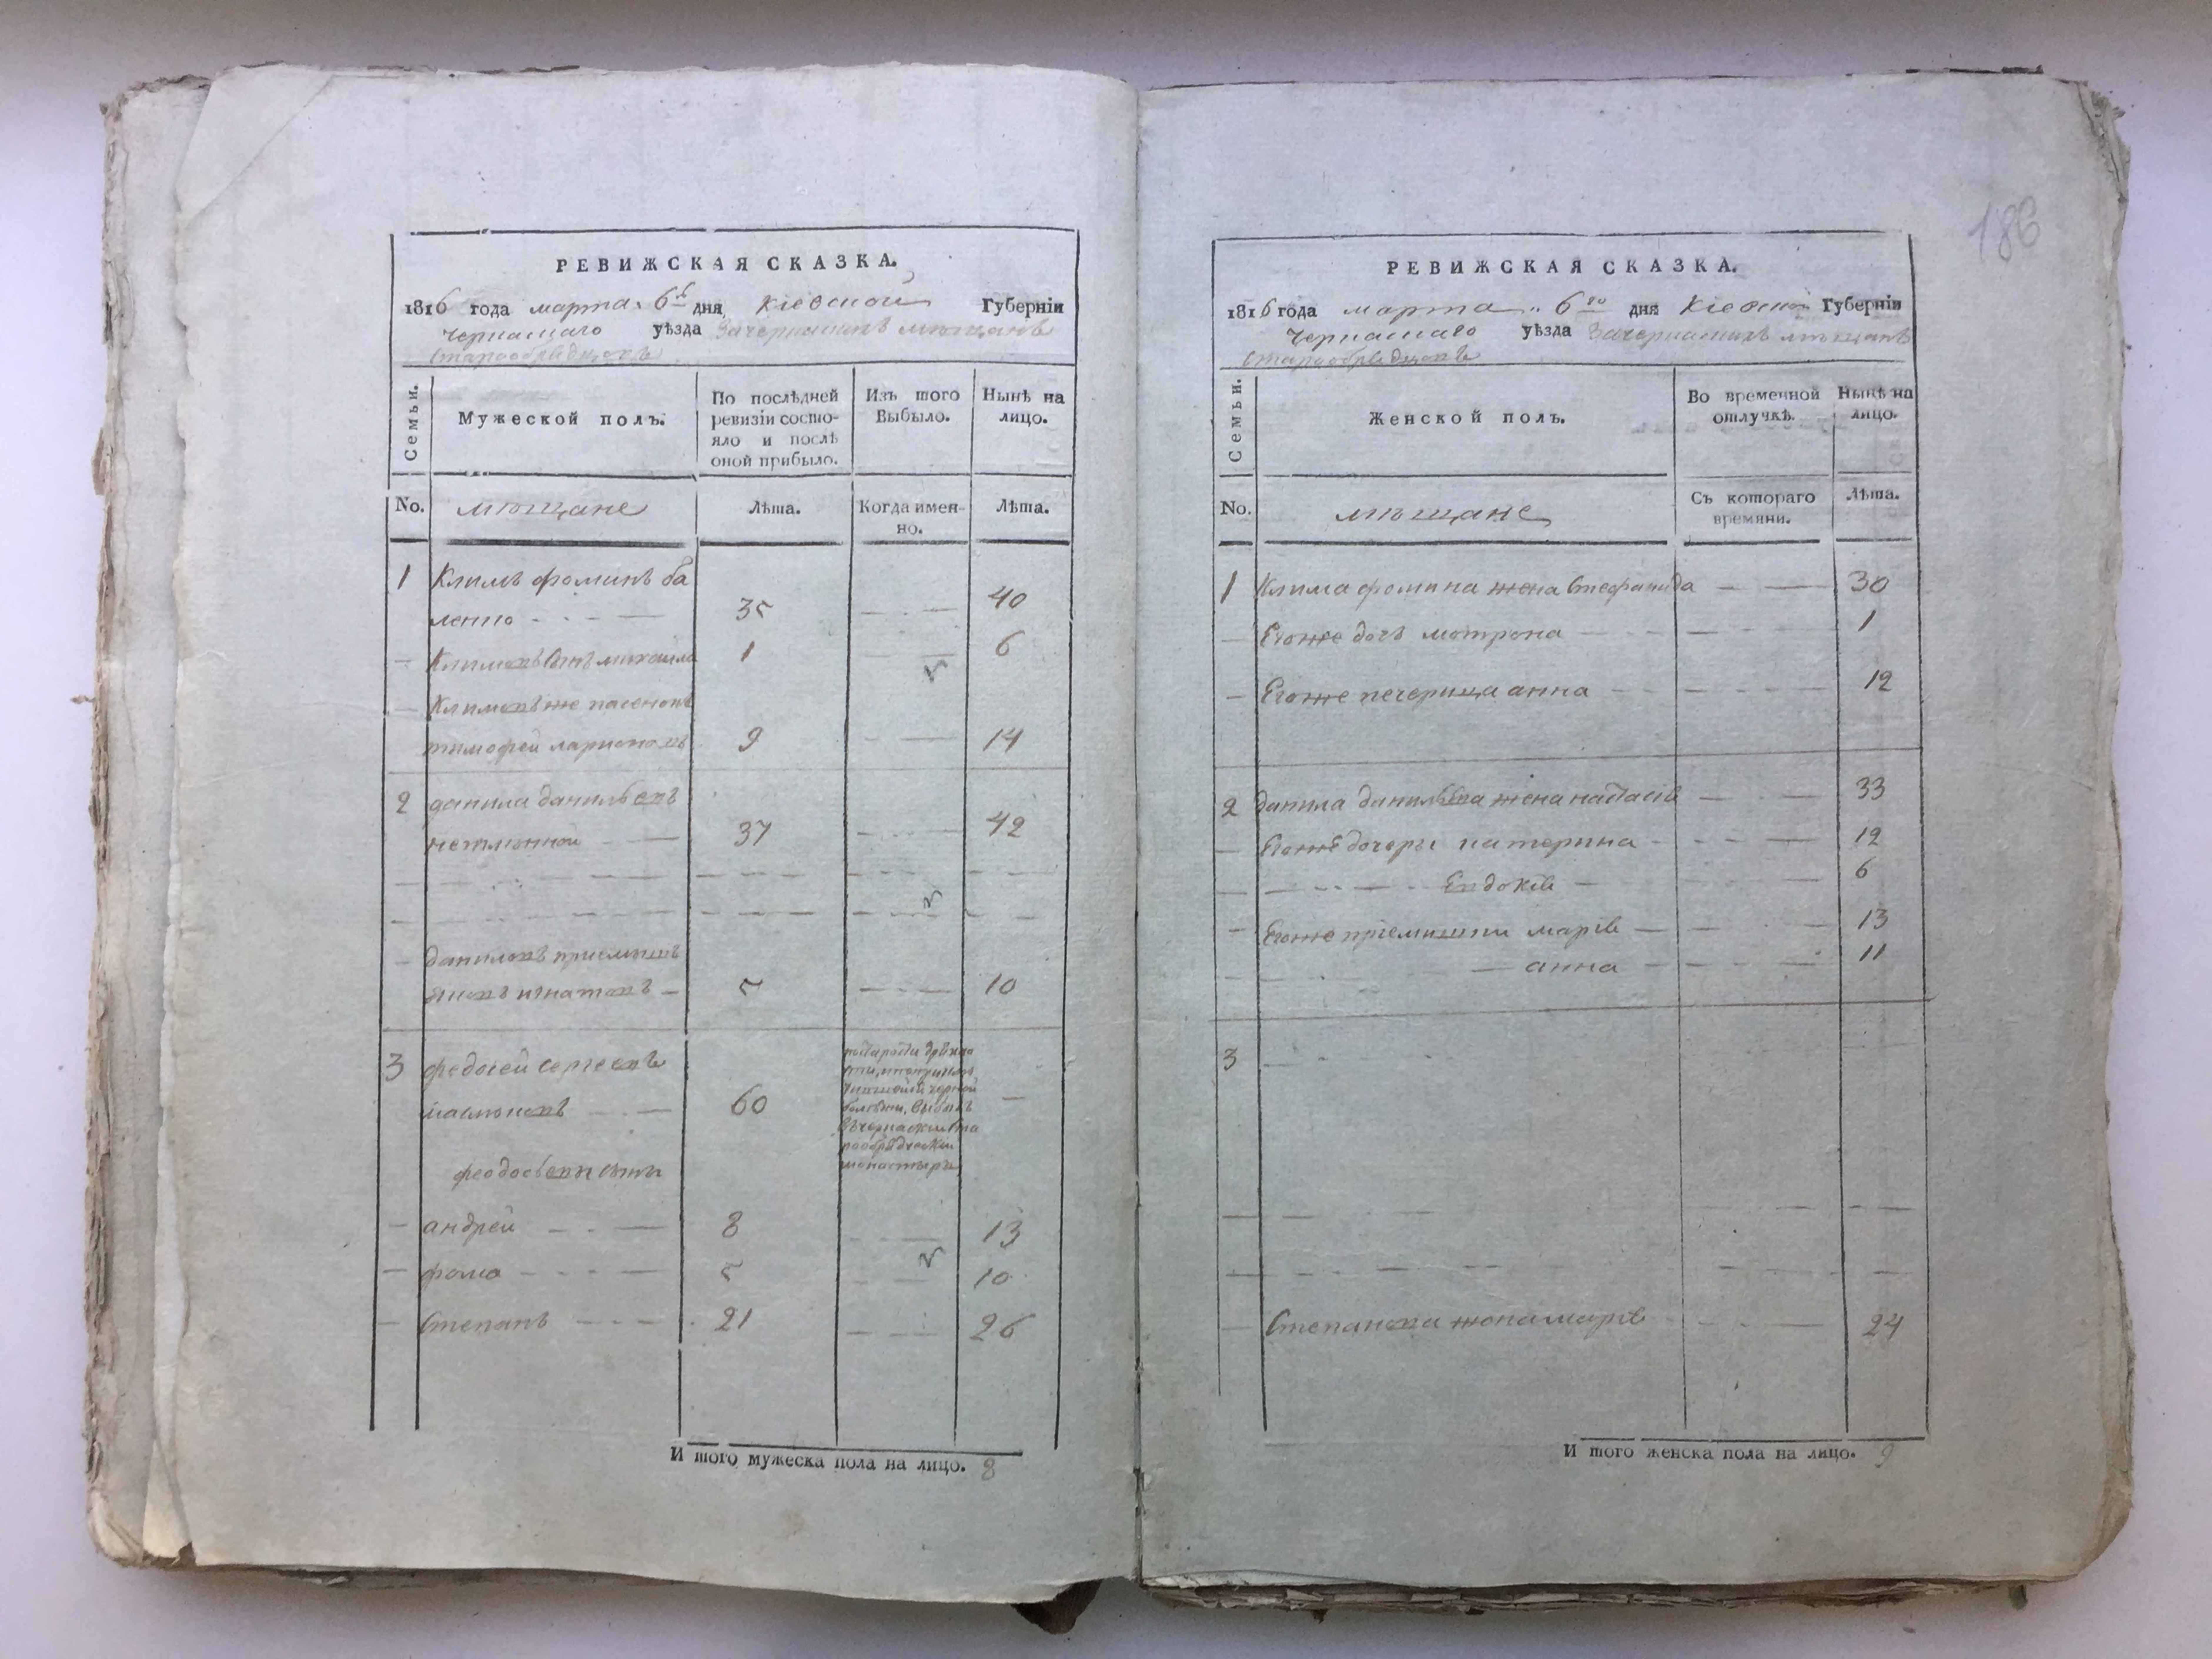 РЕВИЖСКАЯ СКАЗКА.
1816 года марта 6 дня Кіевской Губерніи
Черкаскаго уѣзда мѣщанъ
старообрядцовъ
Семьи.
Мужеской полъ.
По послѣдней ревизіи состояло и послѣ оной прибыло.
Изъ того Выбыло.
Нынѣ на лицо.
No. мѣщане Лѣта. Когда именно. Лѣта.
1 Климъ фоминъ ба
ленко 35 40
Климовъ сынъ михайла 1 6
Климовъ же пасенокъ
тимофей ларионовъ 9 14
2 данила данильевъ
37 42
даниловъ приемышъ
игнатовъ 5 10
3 федосей сергеевъ
60
феодосьевы сыны
андрей 8 13
фома 5 10
Степанъ 21 26
И того мужеска пола на лицо. 8
186
РЕВИЖСКАЯ СКАЗКА.
1816 года марта 6го дня Кіевской Губерніи
Черкаскаго уѣзда мѣщанъ
старообрядцовъ
Семьи.
Женской полъ.
Во временной отлучкѣ.
Нынѣ на лицо.
No. мѣщане Съ котораго времяни. Лѣта.
1 Клима фомина жена Стефанида 30
Егоже дочь мотрона 1
Егоже печерица анна 12
2 данила данильева жена настасія 33
Егоже дочери катерина 12
Евдокія 6
Егоже пріемышки марія 13
анна 11
3
Степанова жена марія 24
И того женска пола на лицо. 9